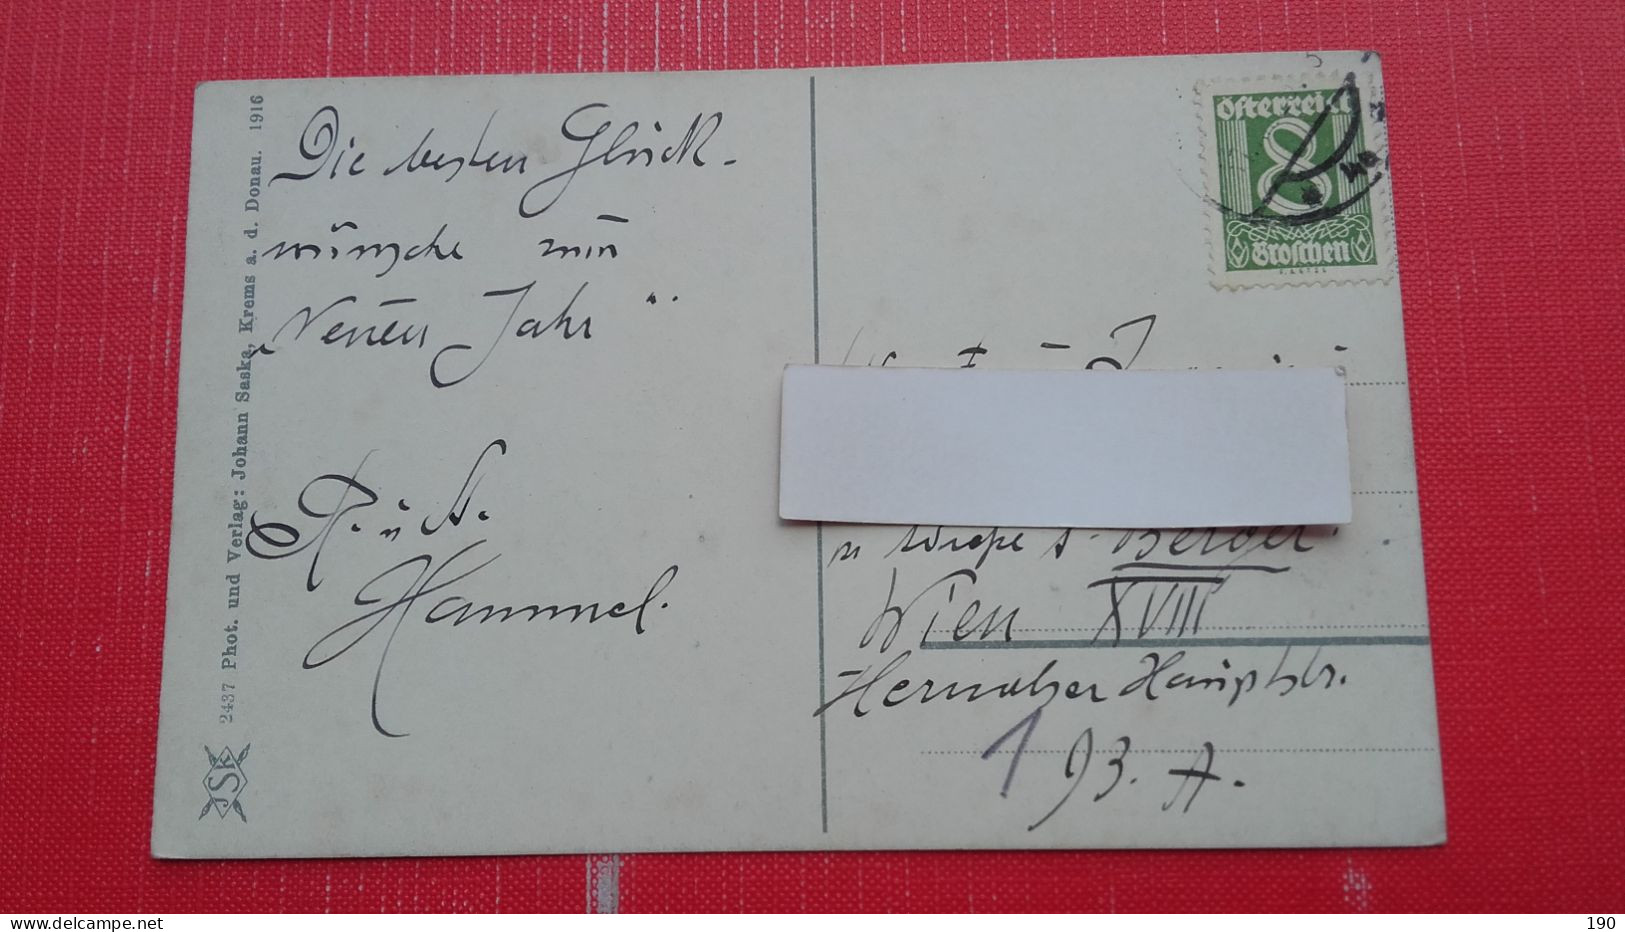 Die besten Glück-
wünsche zum
„Neuen Jahr“.
R. u. A.
Hammel.
2437 Phot. und Verlag: Johann Saska, Krems a. d. Donau. 1916
JSK
Österreich
8
Groschen
Berger
Wien XVIII
Hernalser Hauptstr.
1 93. A.
delcampe.net
190